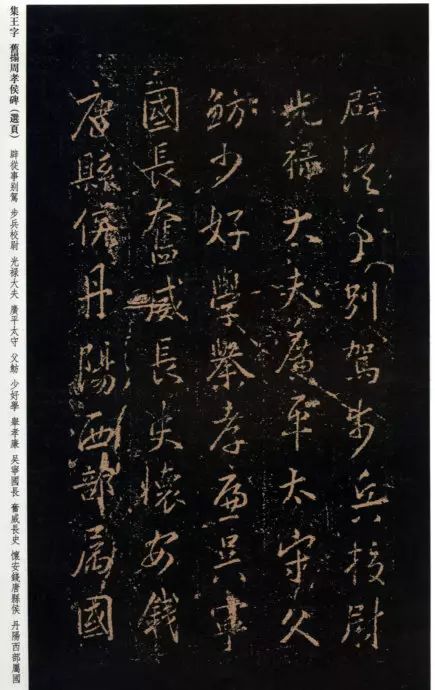 辟從事別駕步兵校尉
光禄大夫廣平太守父
魴少好學舉孝廉吴寧
國長奮威長史懷安錢
唐縣侯丹陽西部屬國
集王字 舊搨周孝侯碑（選頁） 辟從事別駕 步兵校尉 光禄大夫 廣平太守 父魴 少好學 舉孝廉 吴寧國長 奮威長史 懷安錢唐縣侯 丹陽西部屬國